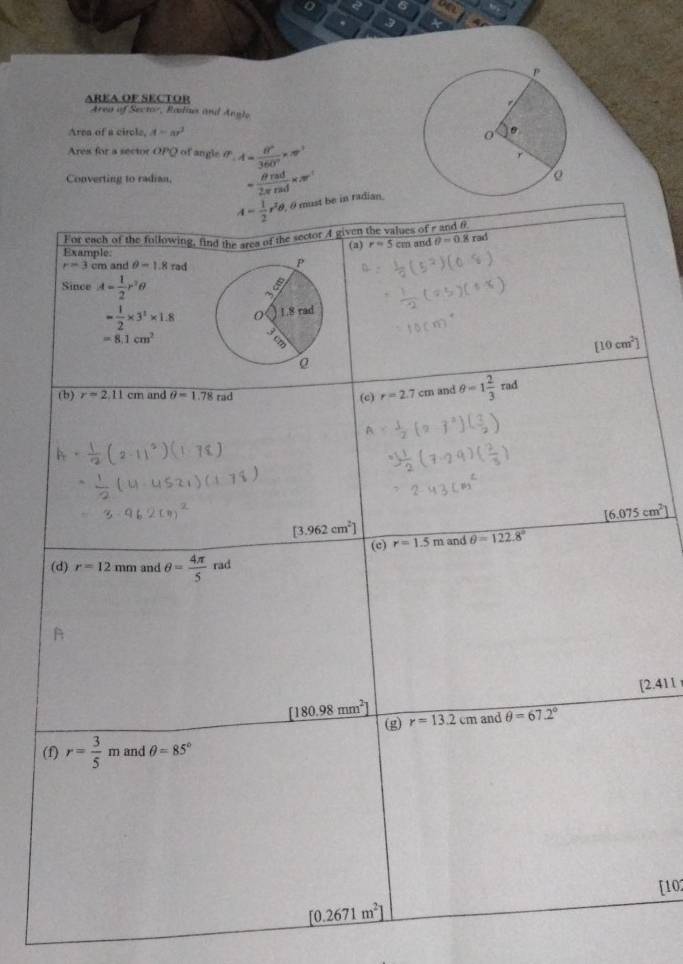 AREA OF SECTOR
Area of Sector, Radius and Angle
Area of a circle, A = πr²
Area for a sector OPQ of angle θ°, A = θ°/360° × πr²
Converting to radian, = θ rad/2π rad × πr²
A = 1/2 r²θ, θ must be in radian.
P
r
O θ
r
Q
For each of the following, find the area of the sector A given the values of r and θ.
Example:
r = 3 cm and θ = 1.8 rad
Since A = 1/2 r²θ
= 1/2 × 3² × 1.8
= 8.1 cm²
P
3 cm
O 1.8 rad
3 cm
Q
(a) r = 5 cm and θ = 0.8 rad
A = 1/2 (5²)(0.8)
= 1/2 (25)(0.8)
= 10cm²
[10 cm²]
(b) r = 2.11 cm and θ = 1.78 rad
A = 1/2 (2.11²)(1.78)
= 1/2 (4.4521)(1.78)
= 3.962cm²
[3.962 cm²]
(c) r = 2.7 cm and θ = 1 2/3 rad
A = 1/2 (2.7²)
= 1/2 (7.29)(2/3)
= 2.43cm²
[6.075 cm²]
(d) r = 12 mm and θ = 4π/5 rad
A
[180.98 mm²]
(e) r = 1.5 m and θ = 122.8°
[2.411
(f) r = 3/5 m and θ = 85°
[0.2671 m²]
(g) r = 13.2 cm and θ = 67.2°
[102